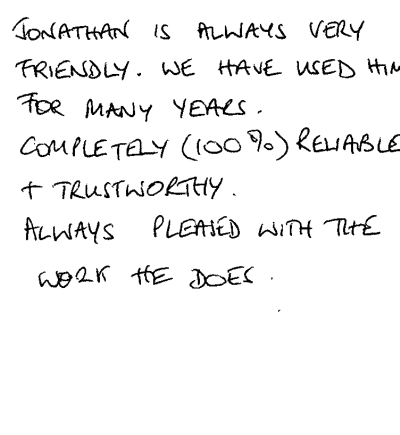 JONATHAN IS ALWAYS VERY
FRIENDLY. WE HAVE USED HIM
FOR MANY YEARS.
COMPLETELY (100%) RELIABLE
+ TRUSTWORTHY.
ALWAYS PLEASED WITH THE
WORK HE DOES.